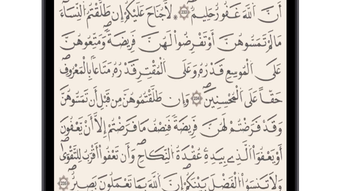 أَنَّ اللَّهَ غَفُورٌ حَلِيمٌ ۝ لَا جُنَاحَ عَلَيْكُمْ إِن طَلَّقْتُمُ النِّسَاءَ
مَا لَمْ تَمَسُّوهُنَّ أَوْ تَفْرِضُوا لَهُنَّ فَرِيضَةً وَمَتِّعُوهُنَّ
عَلَى الْمُوسِعِ قَدَرُهُ وَعَلَى الْمُقْتِرِ قَدَرُهُ مَتَاعًا بِالْمَعْرُوفِ
حَقًّا عَلَى الْمُحْسِنِينَ ۝ وَإِن طَلَّقْتُمُوهُنَّ مِن قَبْلِ أَن تَمَسُّوهُنَّ
وَقَدْ فَرَضْتُمْ لَهُنَّ فَرِيضَةً فَنِصْفُ مَا فَرَضْتُمْ إِلَّا أَن يَعْفُونَ
أَوْ يَعْفُوَ الَّذِي بِيَدِهِ عُقْدَةُ النِّكَاحِ وَأَن تَعْفُوا أَقْرَبُ لِلتَّقْوَىٰ
وَلَا تَنسَوُا الْفَضْلَ بَيْنَكُمْ إِنَّ اللَّهَ بِمَا تَعْمَلُونَ بَصِيرٌ ۝